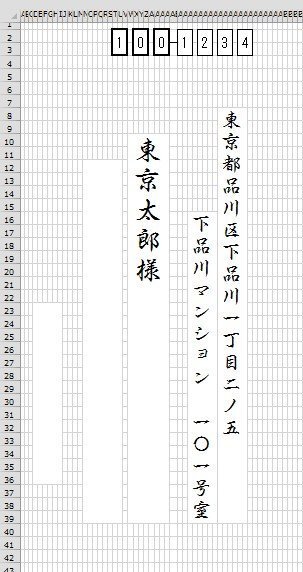 100-1234
東京都品川区下品川一丁目二ノ五
下品川マンション 一〇一号室
東京太郎様
1
2
7
8
9
10
11
12
13
14
15
16
17
18
19
20
21
22
23
24
25
26
27
28
29
30
31
32
33
34
35
36
37
38
39
40
41
42
43